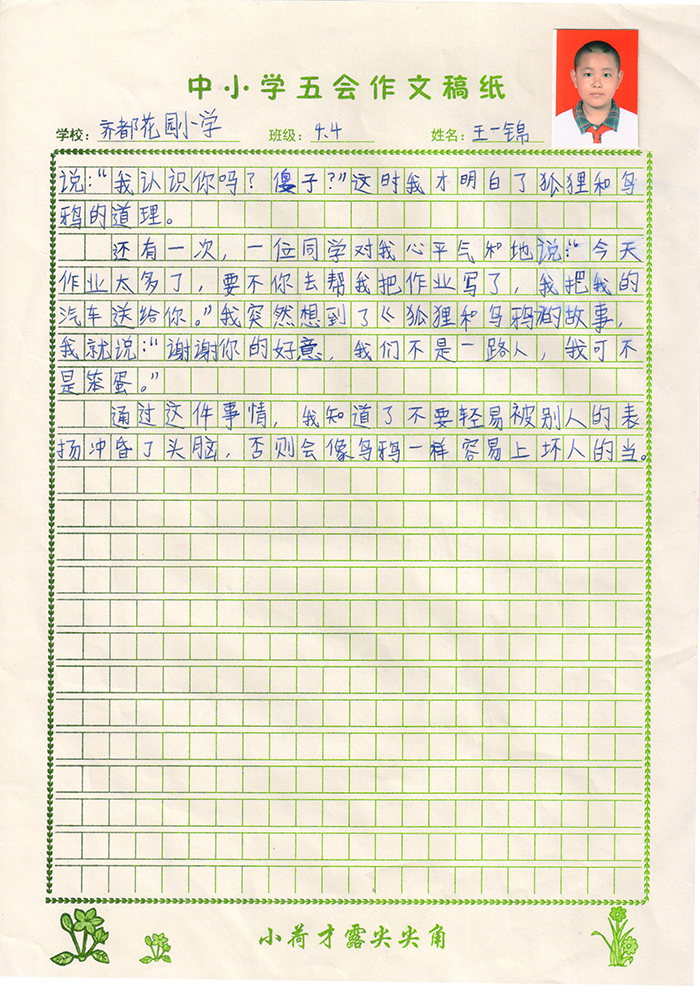 中小学五会作文稿纸
学校: 齐都花园小学 班级: 4.4 姓名: 王一锦
说：“我认识你吗？傻子？”这时我才明白了狐狸和乌
鸦的道理。
还有一次，一位同学对我心平气和地说：“今天
作业太多了，要不你去帮我把作业写了，我把我的
汽车送给你。”我突然想到了《狐狸和乌鸦的故事，
我就说：“谢谢你的好意，我们不是一路人，我可不
是笨蛋。”
通过这件事情，我知道了不要轻易被别人的表
扬冲昏了头脑，否则会像乌鸦一样容易上坏人的当。
小荷才露尖尖角